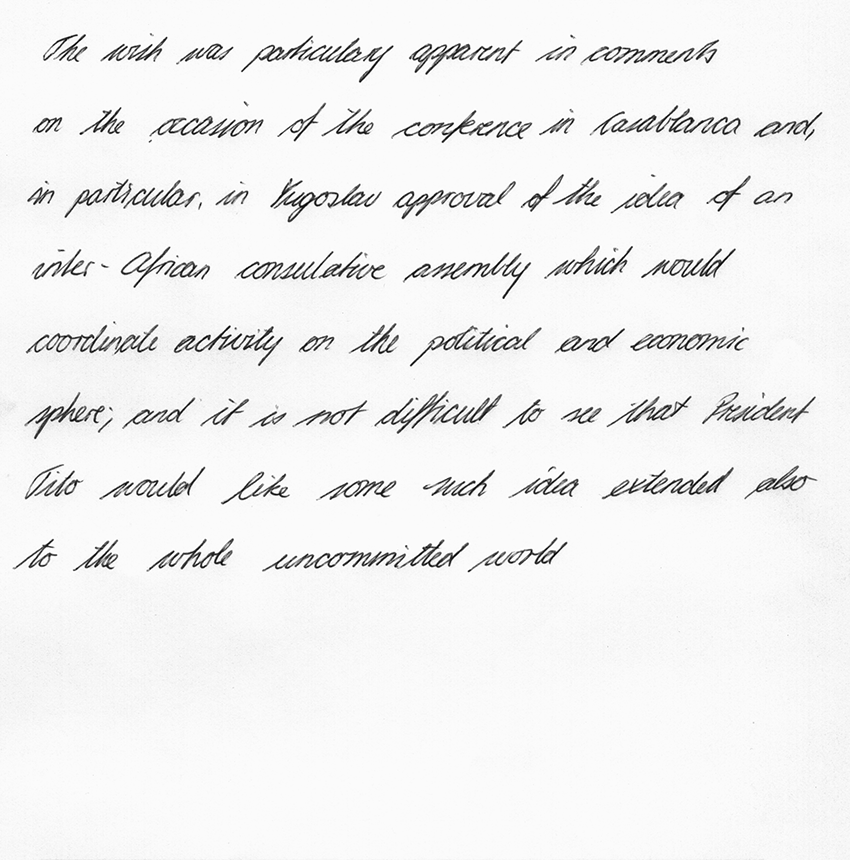 The wish was particulary apparent in comments
on the occasion of the conference in Casablanca and,
in particular, in Yugoslav approval of the idea of an
inter-African consulative assembly which would
coordinate activity on the political and economic
sphere; and it is not difficult to see that President
Tito would like some such idea extended also
to the whole uncommitted world